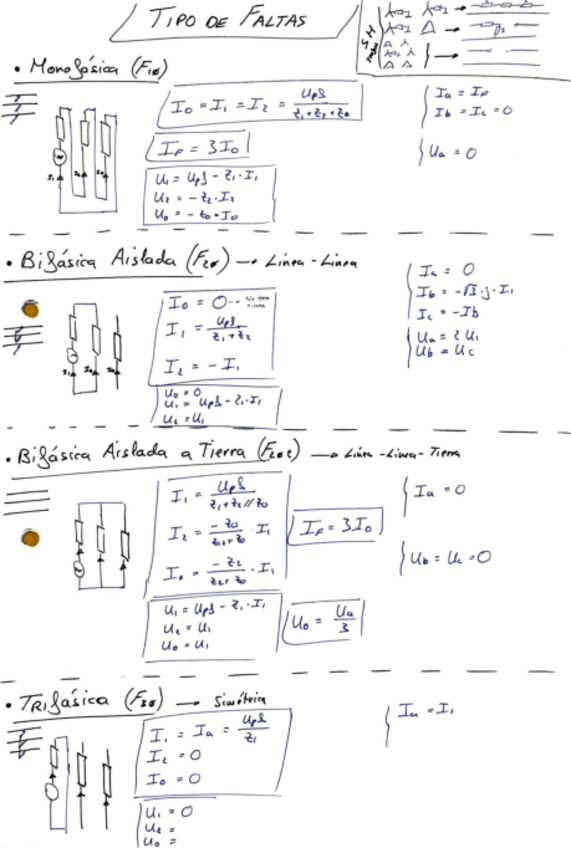 TIPO DE FALTAS
• Monofásica (F1ø)
I0 = I1 = I2 = Upf / Z1+Z2+Z0
IF = 3I0
U1 = Upf - Z1·I1
U2 = -Z2·I2
U0 = -Z0·I0
Ib = Ic = 0
Ua = 0
• Bifásica Aislada (F2ø) → Línea-Línea
I0 = 0
I1 = Upf / Z1+Z2
I2 = -I1
U0 = 0
U1 = Upf - Z1·I1
U2 = U1
Ia = 0
Ib = -√3·j·I1
Ic = -Ib
Ua = 2U1
Ub = Uc
• Bifásica Aislada a Tierra (F2øt) → Línea-Línea-Tierra
I1 = Upf / Z1+Z2//Z0
I2 = -Z0 / Z2+Z0 · I1
I0 = -Z2 / Z2+Z0 · I1
IF = 3I0
U1 = Upf - Z1·I1
U2 = U1
U0 = U1
U0 = Ua / 3
Ia = 0
Ub = Uc = 0
• TRifásica (F3ø) → Simétrica
I1 = Ia = Upf / Z1
I2 = 0
I0 = 0
U1 = 0
U2 =
U0 =
Ia = I1